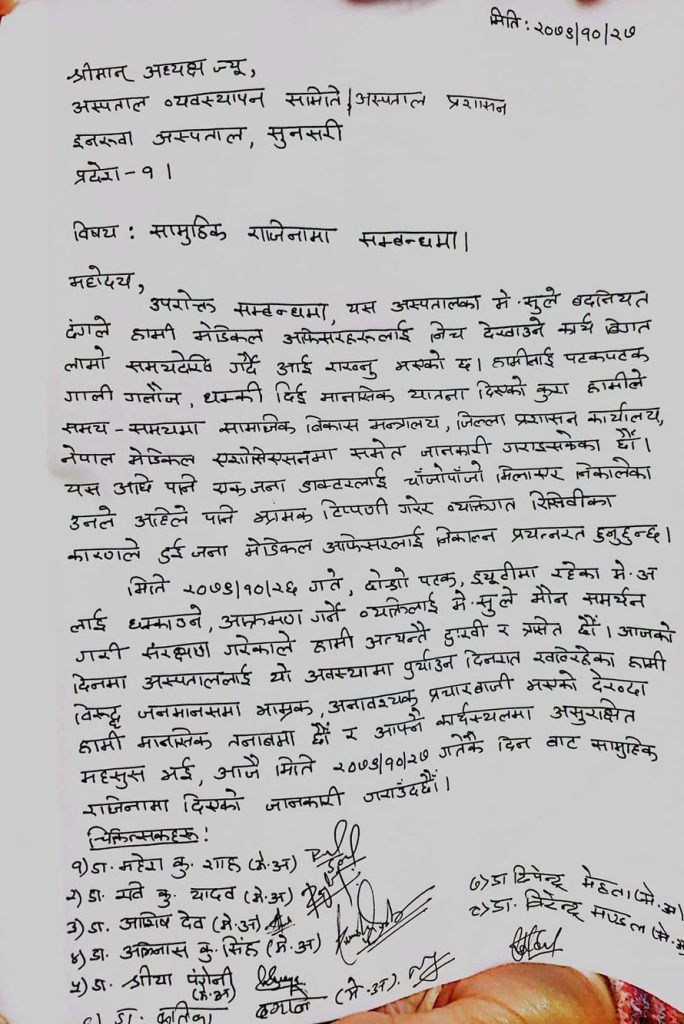 मिति: २०७५/१०/२७
श्रीमान् अध्यक्ष ज्यू,
अस्पताल व्यवस्थापन समिति/अस्पताल प्रशासन
इनरुवा अस्पताल, सुनसरी
प्रदेश-१।
विषय: सामुहिक राजिनामा सम्बन्धमा।
महोदय,
उपरोक्त सम्बन्धमा, यस अस्पतालका मे.सुले बदनियत
ढंगले हामी मेडिकल अफिसरहरूलाई निच देखाउने कार्य विगत
लामो समयदेखि गर्दै आई राख्नु भएको छ। हामीलाई पटकपटक
गाली गलौज, धम्की दिई मानसिक यातना दिएको कुरा हामीले
समय-समयमा सामाजिक विकास मन्त्रालय, जिल्ला प्रशासन कार्यालय,
नेपाल मेडिकल एशोसिएसनमा समेत जानकारी गराइसकेका छौं।
यस अघि पनि एक जना डाक्टरलाई चाँजोपाँजो मिलाएर निकालेका
उनले अहिले पनि भ्रामक टिप्पणी गरेर व्यक्तिगत रिसिवीका
कारणले दुई जना मेडिकल अफिसरलाई निकाल्न प्रयत्नरत हुनुहुन्छ।
मिति २०७५/१०/२६ गते, दोस्रो पटक, ड्यूटीमा रहेका मे.अ
लाई धम्काउने, आक्रमण गर्ने व्यक्तिलाई मे.सुले मौन समर्थन
गरी संरक्षण गरेकाले हामी अत्यन्तै दुःखी र त्रसित छौं। आजको
दिनमा अस्पताललाई यो अवस्थामा पुर्याउन दिनरात खटिरहेका हामी
विरुद्ध जनमानसमा भ्रामक, अनावश्यक प्रचारबाजी भएको देख्दा
हामी मानसिक तनाबमा छौं र आफ्नै कार्यस्थलमा असुरक्षित
महसुस भई, आजै मिति २०७५/१०/२७ गतेकै दिन बाट सामुहिक
राजिनामा दिएको जानकारी गराउँदछौं।
चिकित्सकहरू:
१) डा. महेश कु. शाह (मे.अ)
२) डा. रवि कु. यादव (मे.अ)
३) डा. आशिष देव (मे.अ)
४) डा. अविनास कु. सिंह (मे.अ)
५) डा. श्रीया पंगेनी (मे.अ)
६) डा. कृतिका दमासे (मे.अ).
७) डा दिपेन्द्र मेहता (मे.अ)
८) डा. विरेन्द्र मण्डल (मे.अ)